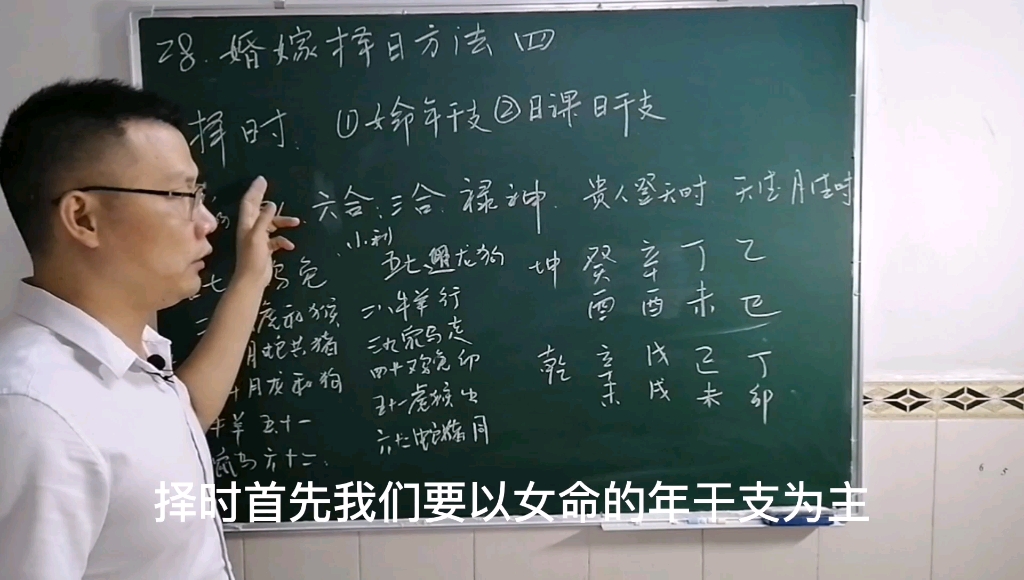 28. 婚嫁择日方法 四
择时. ①女命年干支 ②日课日干支
六合. 三合. 禄神. 贵人登天时
小利
五七 龙狗
鸡兔
坤 癸 辛 丁 乙
酉 酉 未 巳
虎和猴
二八牛羊行
月蛇共猪
三九鼠马走
乾 辛 戊 己 丁
未 戌 未 卯
十月龙和狗
四十鸡兔
牛羊 五十一
五十一虎猴
鼠马 六十二.
六十二蛇猪同
择时首先我们要以女命的年干支为主